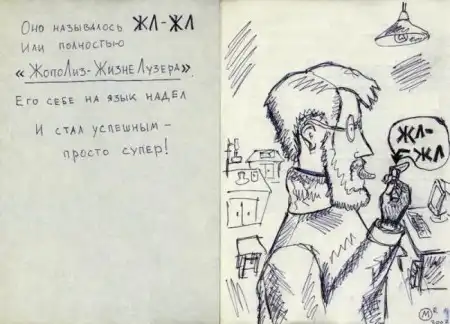 Оно называлось ЖЛ-ЖЛ
Или полностью
«ЖопоЛиз-ЖизнеЛузера».
Его себе на язык надел
И стал успешным –
просто супер!
ЖЛ-
ЖЛ
М